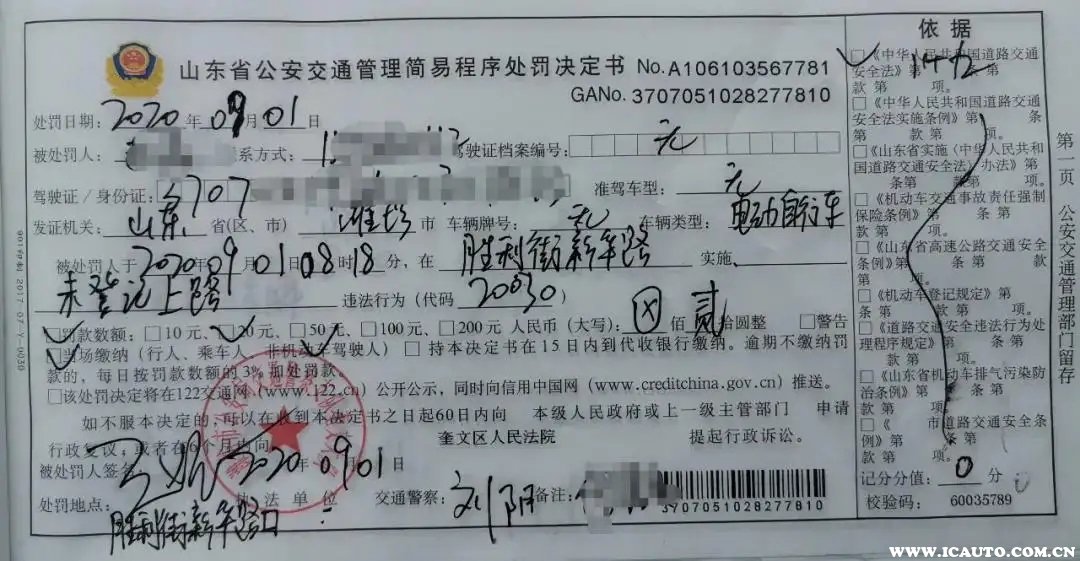 山东省公安交通管理简易程序处罚决定书 No.A106103567781
GANo. 3707051028277810
处罚日期: 2020 年 09 月 01 日
被处罚人: 联系方式: 驾驶证档案编号: 无
驾驶证/身份证: 3707 准驾车型: 无
发证机关: 山东 省(区、市) 潍坊 市 车辆牌号: 无 车辆类型: 电动自行车
被处罚人于 2020 年 09 月 01 日 08 时 18 分, 在 胜利街新华路 实施
未登记上路 违法行为(代码) 20030
□罚款数额: □10元、□20元、□50元、□100元、□200元 人民币(大写): ⊠ 佰 贰 拾圆整 □警告
□当场缴纳(行人、乘车人、非机动车驾驶人) □ 持本决定书在15日内到代收银行缴纳。逾期不缴纳罚
款的, 每日按罚款数额的3%加处罚款
□该处罚决定将在122交通网(www.122.cn)公开公示, 同时向信用中国网(www.creditchina.gov.cn)推送。
如不服本决定, 可以在收到本决定书之日起60日内向 本级人民政府或上一级主管部门 申请
行政复议, 或者在6个月内向 奎文区人民法院 提起行政诉讼。
被处罚人签名 2020 年 09 01 日
处罚地点: 执法单位 交通警察: 刘阴 备注:
胜利街新华路口
3707051028277810
依据
□《中华人民共和国道路交通
安全法》第 条第
款第 项。
□《中华人民共和国道路交通
安全法实施条例》第 条
第 款第 项。
□《山东省实施〈中华人民共和
国道路交通安全法〉办法》第
条第 款第 项。
□《机动车交通事故责任强制
保险条例》第 条第 款
□《山东省高速公路交通安全
条例》第 条第 款
□《机动车登记规定》第 条
□《道路交通安全违法行为处
理程序规定》第 条
□《山东省机动车排气污染防
治条例》第 条第 款
□《 市道路交通安全条
例》第 条第
款第 项。
记分分值: 0 分
校验码: 60035789
第一页 公安交通管理部门留存
WWW.ICAUTO.COM.CN